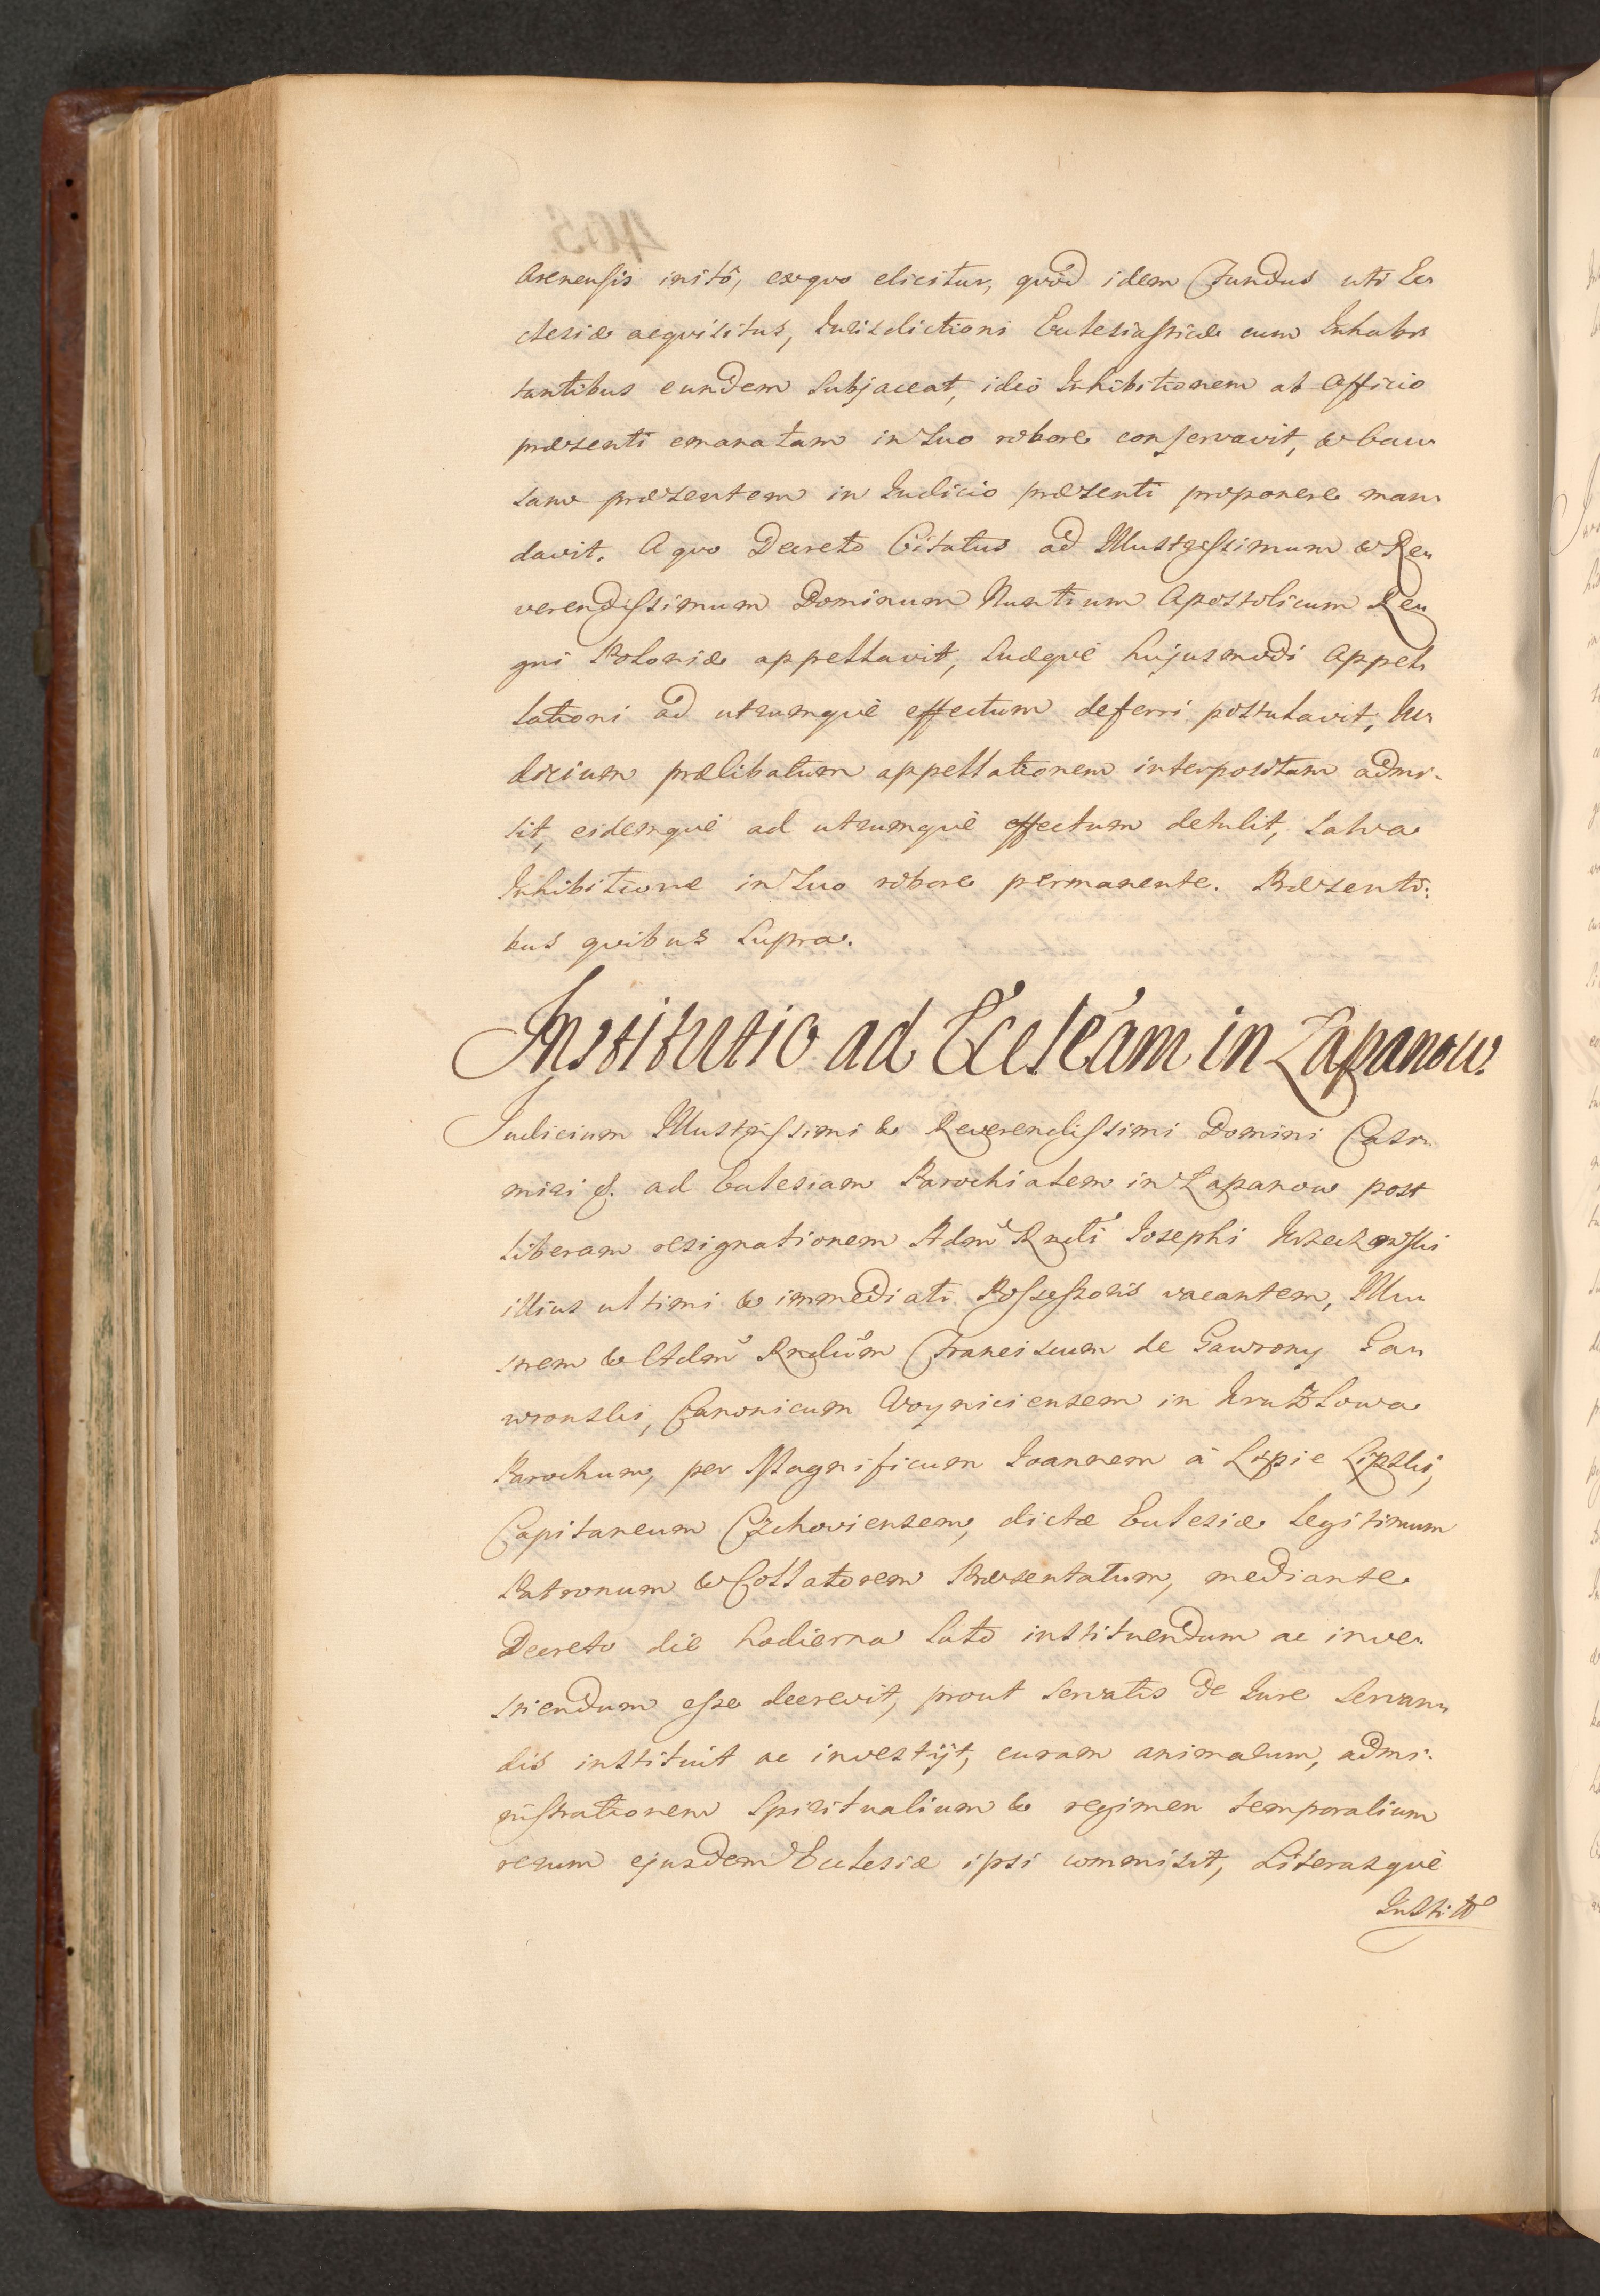 Arenensis initô, ex quo elicitur, quòd idem Fundus uti Ec
clesiæ acquisitus, Jurisdictioni Ecclesiasticæ cum Inhabi
tantibus eundem subjaceat, ideò Inhibitionem ab Officio
præsenti emanatam in suo robore conservavit, & Cau
sam præsentem in Iudicio præsenti proponere man
davit. A quo Decreto Citatus ad Illustrissimum & Re
verendissimum Dominum Nuntium Apostolicum Re
gni Poloniæ appellavit, suæque hujusmodi Appel
lationi ad utrumquè effectum deferri postulavit, Ju
dicium prælibatum appellationem interpositam admi-
sit, eidemquè ad utrumquè effectum detulit, salva
Inhibitione in suo robore permanente. Præsenti:
bus quibus supra.
Institutio ad Eccleam in Łapanow.
Judicium Illustrissimi & Reverendissimi Domini Casi
miri &. ad Ecclesiam Parochialem in Łapanow post
liberam resignationem Adm Rndi Josephi
illius ultimi & immediati Possessoris vacantem, Illu
strem & Adm Rndum Franciscum de Gawrony Ga
wronski, Canonicum Woyniciensem in Kruzlowa
Parochum, per Magnificum Joannem à Lipie Lipski,
Capitaneum Czchoviensem, dictæ Ecclesiæ legitimum
Patronum & Collatorem Præsentatum, mediante
Decreto die hodierna lato instituendum ac inve-
stiendum esse decrevit, prout servatis de Jure servan
dis instituit ac investijt, curam animarum, admi-
nistrationem Spiritualium & regimen temporalium
rerum ejusdem Ecclesiæ ipsi commisit, Literasquè
Institõ